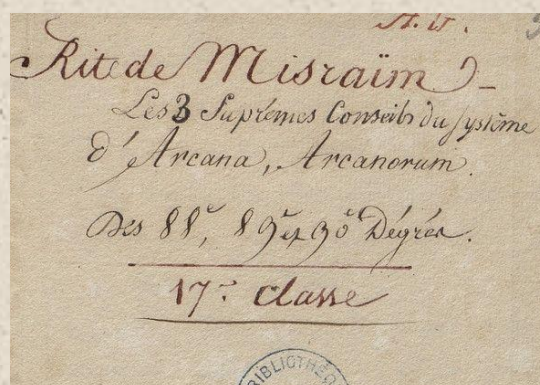 Rite de Misraïm
Les 3 Suprêmes Conseils du système
d'Arcana, Arcanorum.
Des 88e, 89e et 90e Dégrés.
17e classe
BIBLIOTHÈ